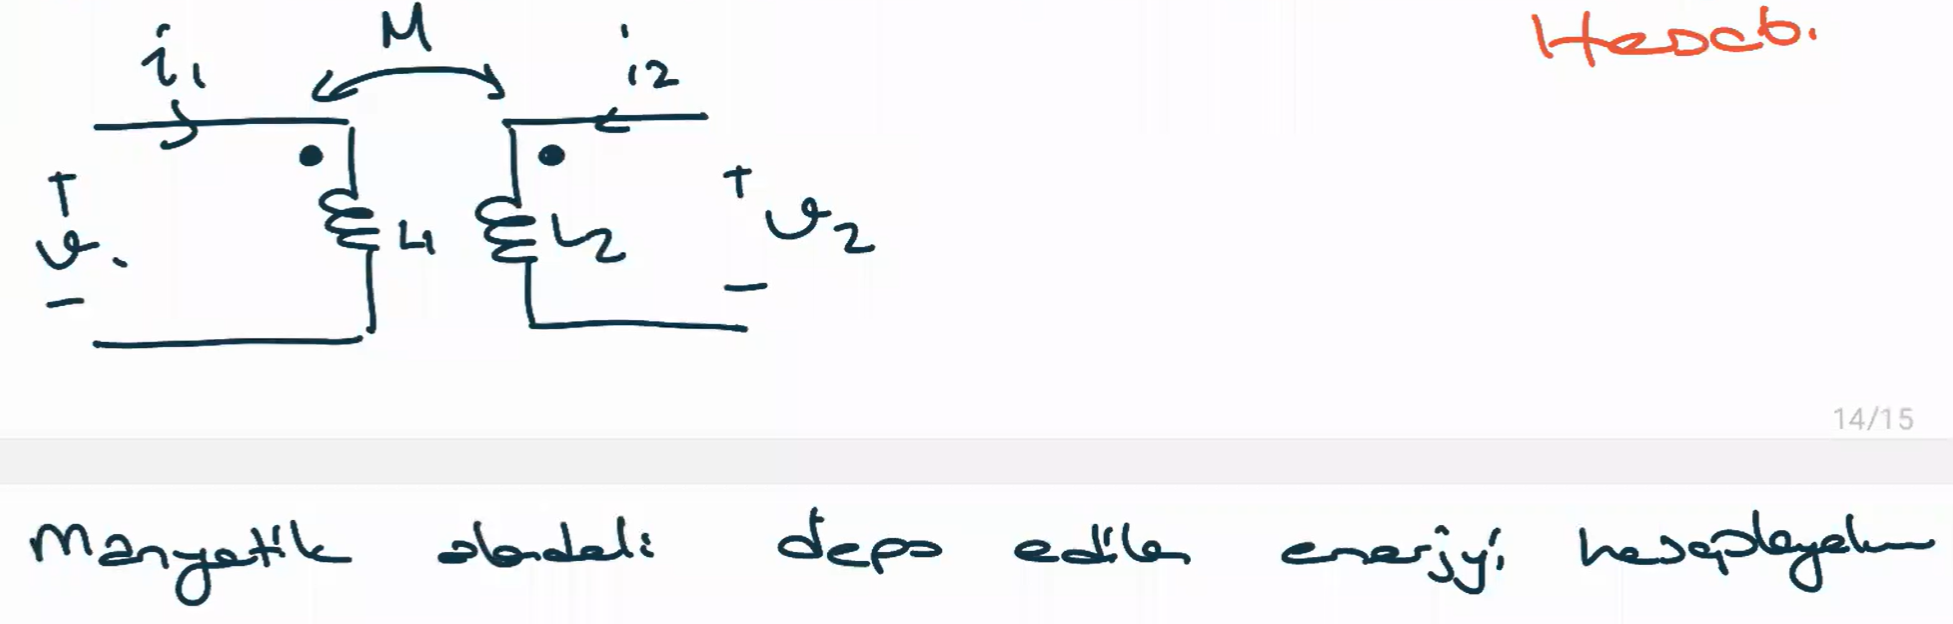 Hesab.
M
i1
i2
+
v1
-
L1
L2
+
v2
-
14/15
Manyetik alandaki depo edilen enerjyi hesaplayalım